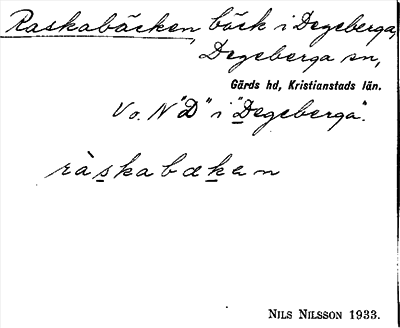 Raskabäcken, bäck i Degeberga,
Degeberga sn,
Gärds hd, Kristianstads län.
V o. N "D" i "Degeberga".
ràskabæken
NILS NILSSON 1933.